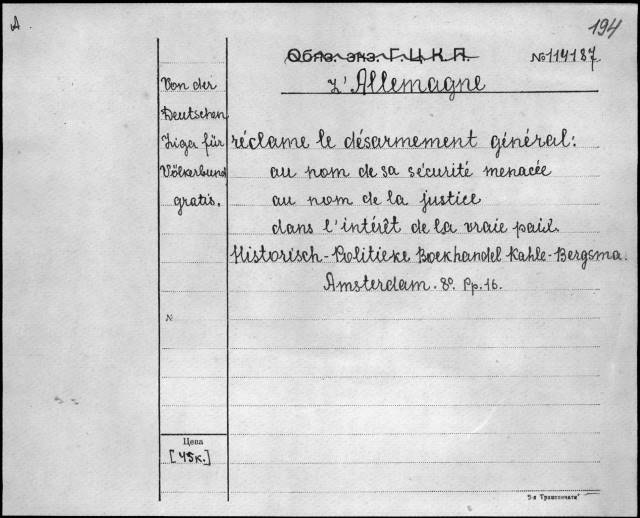 A
194
Обяз. экз. Г.Ц.К.П.
№114187
L'Allemagne
Von der
Deutschen
Liga für
Völkerbund
gratis.
réclame le désarmement général:
au nom de sa sécurité menacée
au nom de la justice
dans l'intérêt de la vraie paix.
Historisch-Politieke Boekhandel Kahle-Bergsma.
Amsterdam. 8º. Pp. 16.
N
Цена
[45к.]